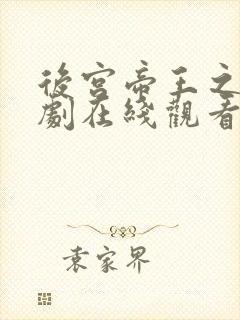 後宮帝王之
劇在綫觀看
袁家界